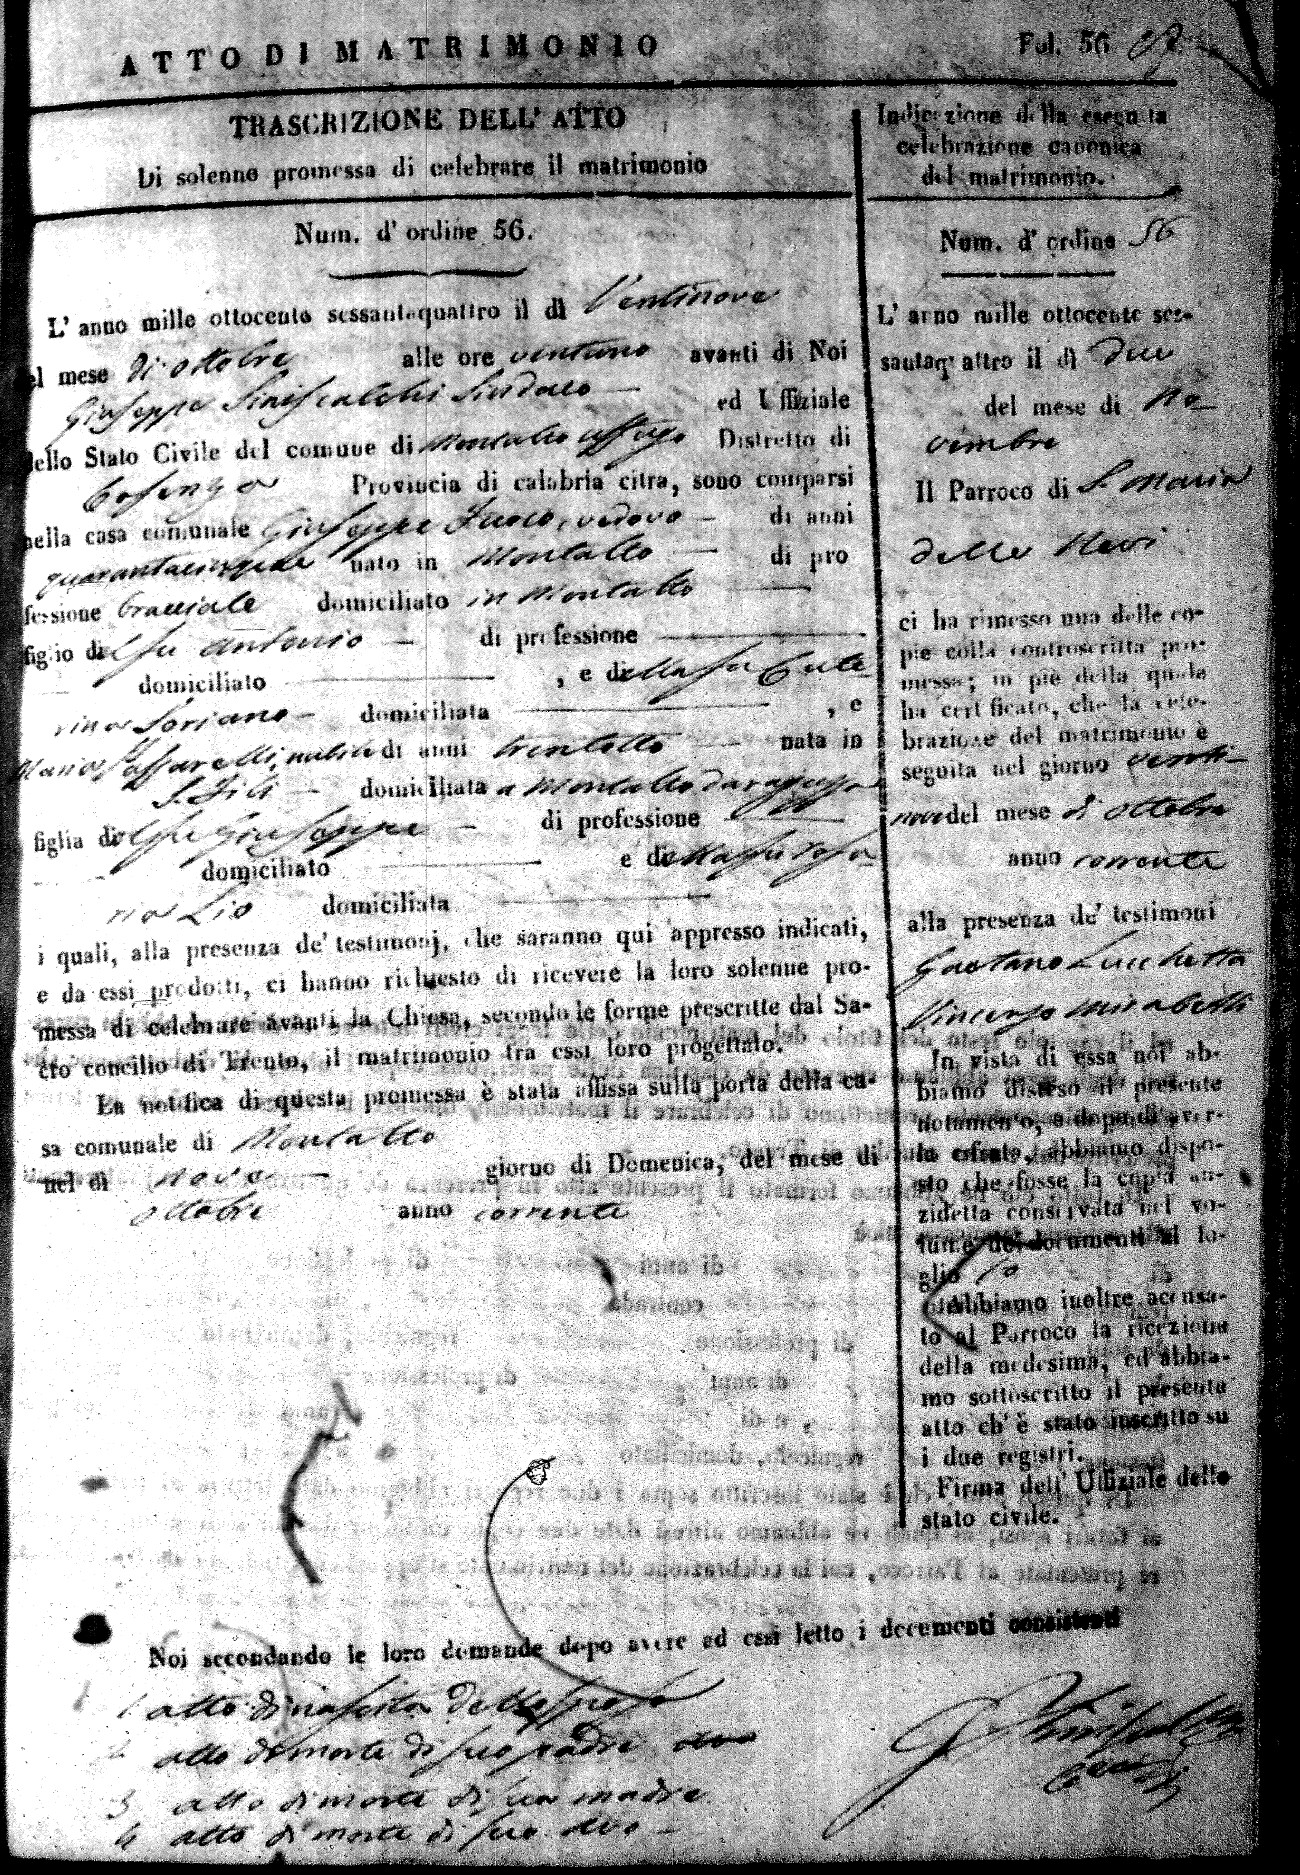 ATTO DI MATRIMONIO
Fol. 56
TRASCRIZIONE DELL' ATTO
Di solenne promessa di celebrare il matrimonio
Num. d' ordine 56.
L' anno mille ottocento sessantaquattro il dì Ventinove
el mese di ottobre alle ore ventuno avanti di Noi
Giuseppe Siniscalchi Sindaco ed Uffiziale
dello Stato Civile del comune di Montalto Uffugo Distretto di
Cosenza Provincia di calabria citra, sono comparsi
nella casa comunale Giuseppe Fuoco, vedovo di anni
quarantacinque nato in Montalto di pro
fessione bracciale domiciliato in Montalto
figlio del fu Antonio di professione
domiciliato , e della fu Cate
rina Soriano domiciliata , e
Maria Passarelli, nubile di anni trentotto nata in
S. Sili domiciliata a Montalto da ragazza
figlia del fu Giuseppe di professione
domiciliato e della fu Rosa
ria Lio domiciliata
i quali, alla presenza de' testimonj, che saranno qui appresso indicati,
e da essi prodotti, ci hanno richiesto di ricevere la loro solenne pro-
messa di celebrare avanti la Chiesa, secondo le forme prescritte dal Sa-
cro concilio di Trento, il matrimonio tra essi loro progettato.
La notifica di questa promessa è stata affissa sulla porta della ca-
sa comunale di Montalto
nel di nove giorno di Domenica, del mese di
ottobre anno corrente
Noi secondando le loro domande dopo avere ad essi letto i documenti consistenti
1 atto di nascita della sposa
2 atto di morte di suo padre
3 atto di morte di sua madre
4 atto di morte di suo avo
Indicazione della eseguita
celebrazione canonica
del matrimonio.
Num. d' ordine 56
L' anno mille ottocento ses-
santaquattro il dì due
del mese di No-
vembre
Il Parroco di S. Maria
della Nevi
ci ha rimesso una delle co-
pie colla controscritta pro-
messa; in piè della quale
ha certificato, che la cele-
brazione del matrimonio è
seguita nel giorno venti-
nove del mese di ottobre
anno corrente
alla presenza de' testimoni
Gaetano Lucchetta
Vincenzo Mirabelli
In vista di essa noi ab-
biamo disteso il presente
notamento, e dopo di aver-
la cifrata, abbiamo dispo-
sto che fosse la copia an-
zidetta conservata nel vo-
lume dei documenti al fo-
glio
Abbiamo inoltre accusa-
to al Parroco la ricezione
della medesima, ed abbia-
mo sottoscritto il presente
atto ch' è stato inscritto su
i due registri.
Firma dell' Uffiziale dello
stato civile.